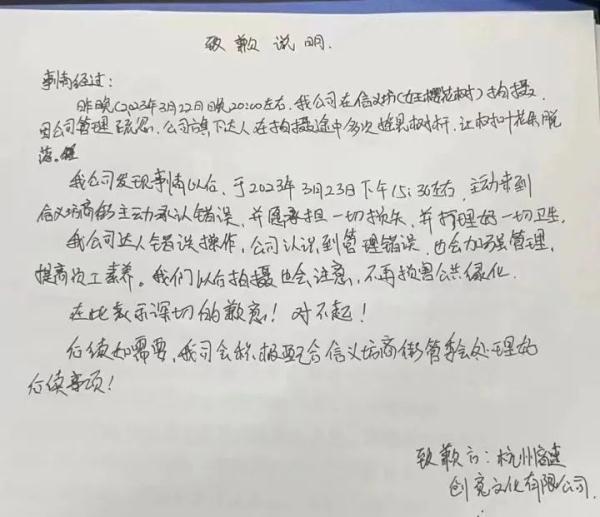 致歉说明.
事情经过:
昨晚(2023年3月22日晚20:00左右,我公司在信义坊(女王樱花树)拍摄.
因公司管理疏忽.公司旗下达人在拍摄途中多次摇晃树杆,让树叶花朵脱
落.
我公司发现事情以后,于2023年3月23日下午15:36左右,主动来到
信义坊商街主动承认错误,并愿承担一切损失,并打理好一切卫生.
我公司达人错误操作,公司认识到管理错误,也会加强管理,
提高员工素养。我们以后拍摄也会注意,不再损害公共绿化.
在此表示深切的歉意!对不起!
后续如需要,我司会积极配合信义坊商街管委会处理好
后续事项!
致歉方:杭州
创亮文化有限公司.